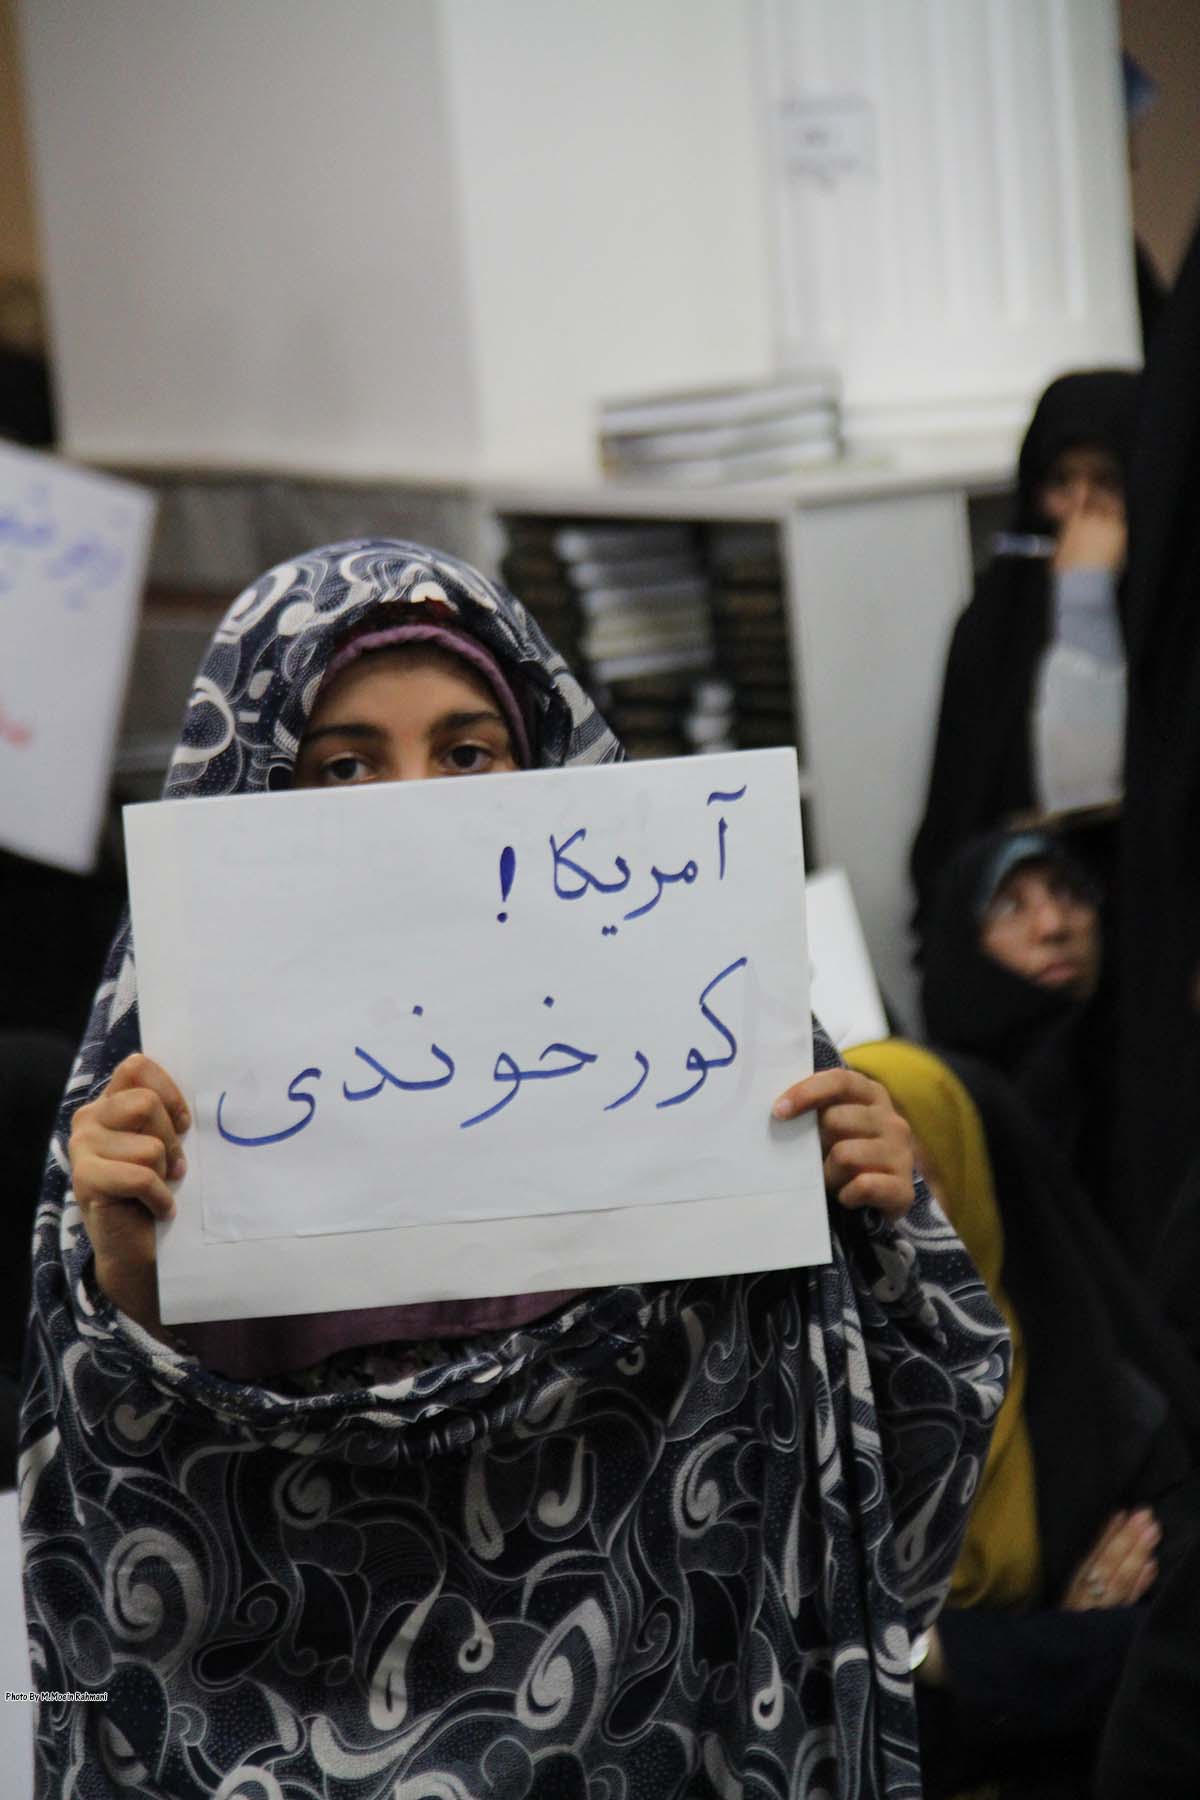 آمریکا !
کور خوندی
Photo By M.Moein Rahmani